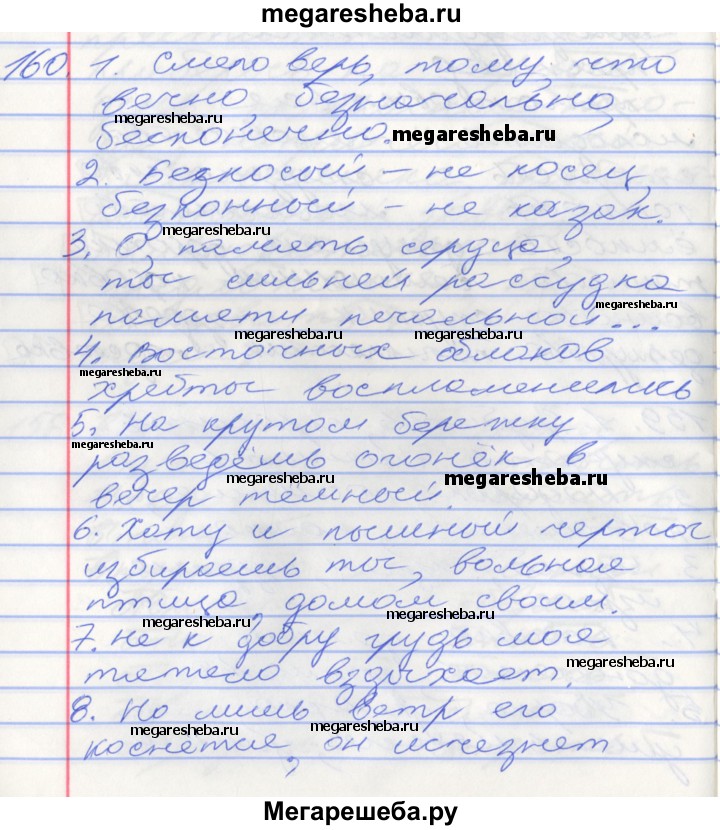 megaresheba.ru
160. 1. Смело верь, тому, что
megaresheba.ru
вечно, безначально,
megaresheba.ru
бесконечно.
megaresheba.ru
2. Безкосый – не косец,
безконный – не казак.
megaresheba.ru
3. О, память сердца,
ты сильней рассудка
megaresheba.ru
памяти печальной...
megaresheba.ru
megaresheba.ru
4. Восточных облаков
megaresheba.ru
хребты воспламенились
5. На крутом бережку
megaresheba.ru
разведёшь огонёк в
megaresheba.ru
megaresheba.ru
вечер тёмный.
6. Хату и пышный чертог
избираешь ты, вольная
птица, домом своим.
megaresheba.ru
megaresheba.ru
7. Не к добру грудь моя
megaresheba.ru
тяжело вздыхает.
8. Но лишь ветр его
megaresheba.ru
megaresheba.ru
коснётся, он исчезнет
Мегарешеба.ру